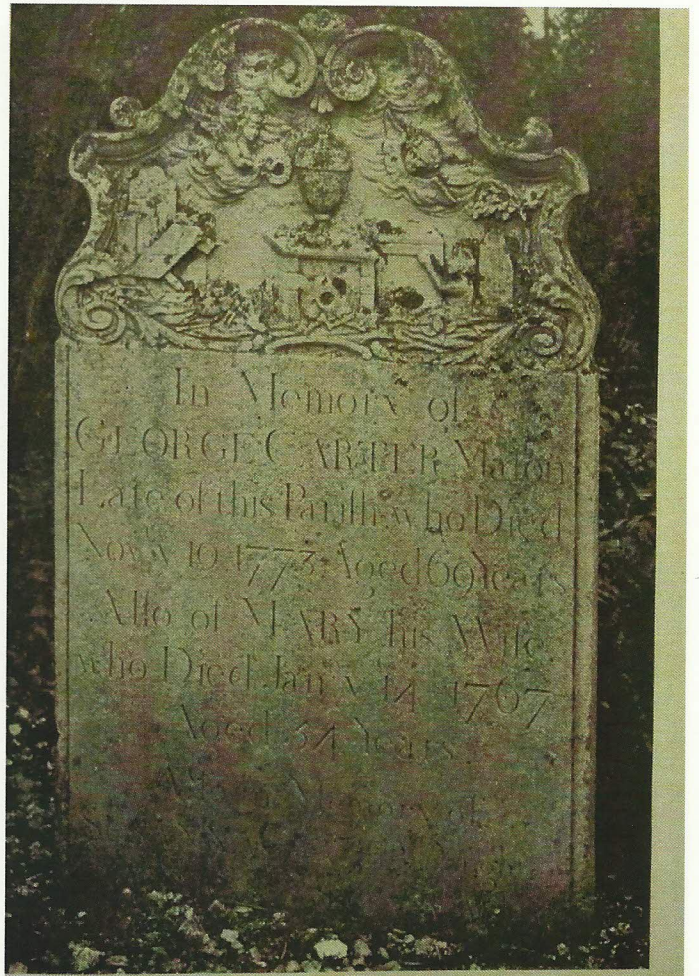 In Memory of
GEORGE CARTER Maſon
Late of this Pariſh who Died
Novr. 10 1773 Aged 69 Years
Alſo of MARY his Wife
who Died Jany. 14 1767
Aged 54 Years
Memory of